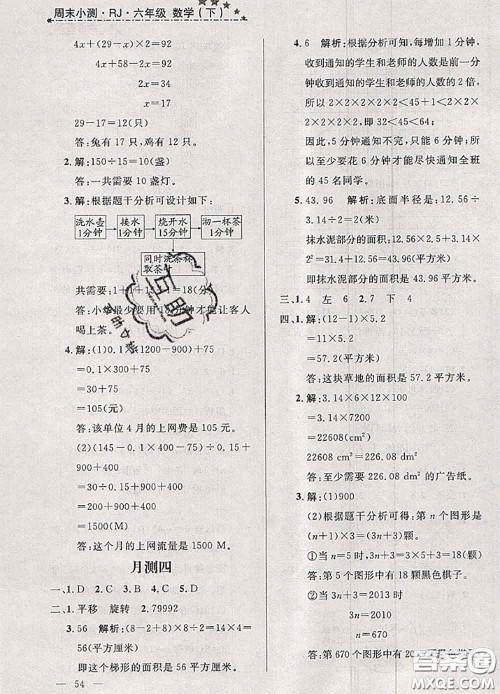 周末小测·RJ·六年级 数学(下)
4x+(29-x)×2=92
4x+58-2x=92
2x=34
x=17
29-17=12(只)
答:兔有17只,鸡有12只。
2.解:150÷15=10(盏)
答:一共需要10盏灯。
3.解:根据题干分析可设计如下:
洗水壶1分钟→接水1分钟→烧开水15分钟→沏一杯茶1分钟
同时洗茶杯取茶叶
共需要:1+1+15+1=18(分钟)
喝上茶。
4.解:(1)0.1×(1200-900)+75
=0.1×300+75
=30+75
=105(元)
答:该单位4月的上网费是105元。
(2)(145-0.1×400-75)÷0.15+
900+400
=30÷0.15+900+400
=200+900+400
=1500(M)
答:这个月的上网流量是1500 M。
月测四
一、1.D 2.C 3.D 4.D 5.D
二、1.平移 旋转 2.79992
3.56 解析:(8-2+8)×8÷2=14×4=
56(平方厘米)
即这个梯形的面积是56平方厘米。
54
4.6 解析:根据分析可知,每增加1分钟,
收到通知的学生和老师的人数是前一分
钟收到通知的学生和老师的人数的2倍,
所以2×2×2×2×2<45<2×2×2×2
×2×2,即32<45<64;
因此,5分钟通知不完,只能6分钟;
所以至少需要6分钟才能尽快通知全班
的45名同学。
5.43.96 解析:底面半径是:12.56÷
3.14÷2=2(米)
抹水泥部分的面积:12.56×2.5+3.14
×2²=31.4+12.56=43.96(平方米)
即抹水泥部分的面积是43.96平方米。
三、1.4 左 6 2.7 下 4
四、1.解:(12-1)×5.2
=11×5.2
=57.2(平方米)
答:这块草地的面积是57.2平方米。
2.解:3.14×6×12×100
=3.14×7200
=22608(cm²)
22608 cm²=226.08 dm²
答:至少需要226.08 dm²的广告纸。
3.解:(1)900
(2)根据题干分析可得:第n个图形是
3n+3=3(n+1)
①当n=5时,3n+3=3×5+3=18(颗)
答:第5个图形中有18颗黑色棋子。
②当3n+3=2013时
3n=2010
n=670
答:第670个图形中有20
作业帮